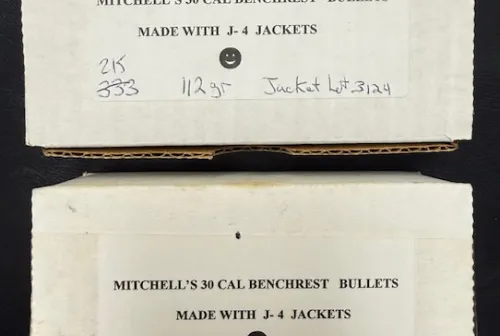 MITCHELL'S 30 CAL BENCHREST BULLETS
MADE WITH J- 4 JACKETS
2K
333 112 gr Jacket Lot 3124
MITCHELL'S 30 CAL BENCHREST BULLETS
MADE WITH J- 4 JACKETS